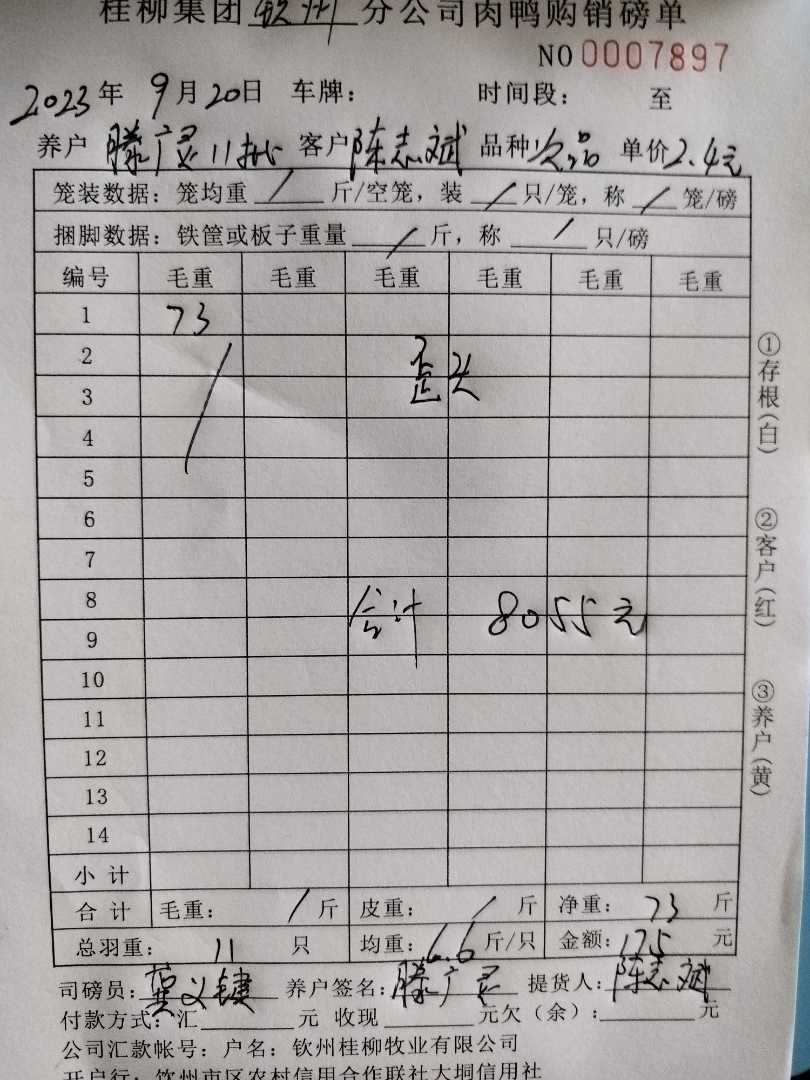 桂柳集团 钦州 分公司肉鸭购销磅单
NO 0007897
2023年 9月20日 车牌: 时间段: 至
养户 滕广灵11批 客户 陈志斌 品种 次品 单价 2.4元
笼装数据: 笼均重 / 斤/空笼, 装 / 只/笼, 称 / 笼/磅
捆脚数据: 铁筐或板子重量 / 斤, 称 / 只/磅
编号 毛重 毛重 毛重 毛重 毛重 毛重
1 73
2 歪头
3
4
5
6
7
8 合计 8055元
9
10
11
12
13
14
小计
合计 毛重: / 斤 皮重: / 斤 净重: 73 斤
总羽重: 11 只 均重: 6.6 斤/只 金额: 175 元
司磅员: 莫义键 养户签名: 滕广灵 提货人: 陈志斌
付款方式: 汇 元 收现 元欠(余): 元
公司汇款帐号: 户名: 钦州桂柳牧业有限公司
开户行: 钦州市区农村信用合作联社大垌信用社
①存根(白)
②客户(红)
③养户(黄)